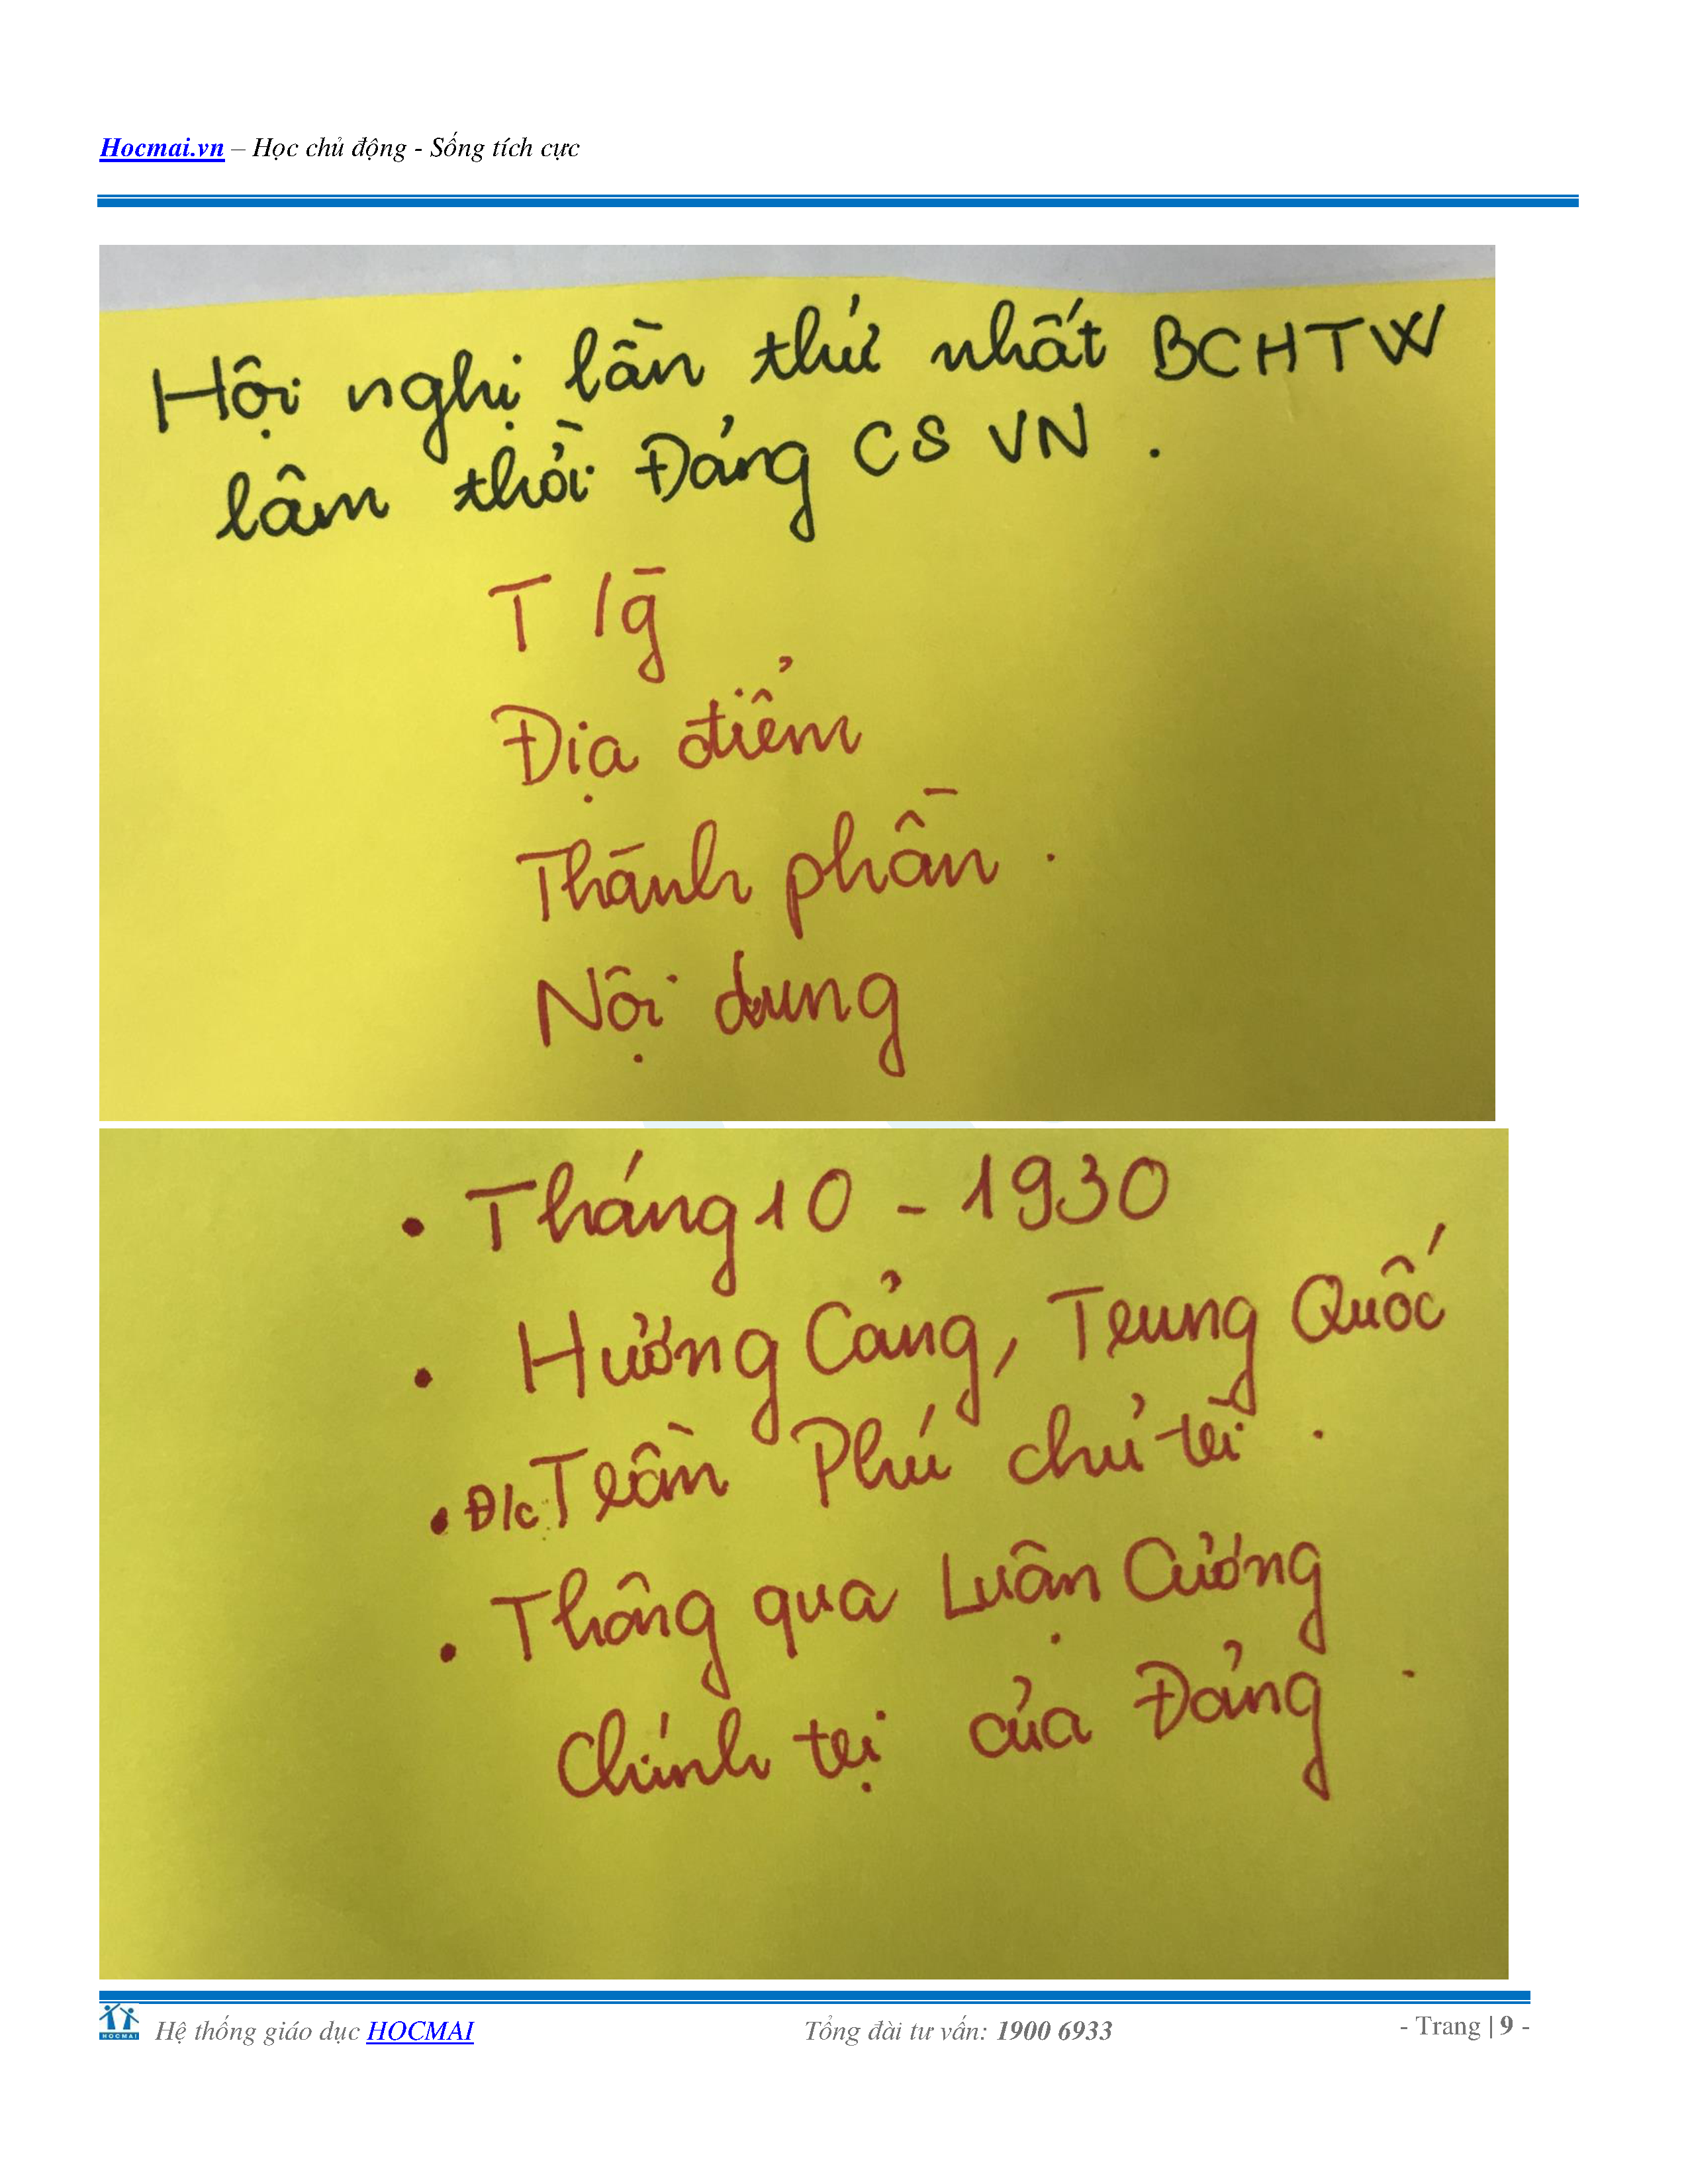 Hocmai.vn – Học chủ động - Sống tích cực
Hội nghị lần thứ nhất BCHTW
lâm thời Đảng CS VN .
T/g
Địa điểm
Thành phần .
Nội dung
• Tháng 10 - 1930
• Hương Cảng, Trung Quốc
• Đ/c Trần Phú chủ trì .
• Thông qua Luận Cương
Chính trị của Đảng .
HOCMAI
Hệ thống giáo dục HOCMAI
Tổng đài tư vấn: 1900 6933
- Trang | 9 -